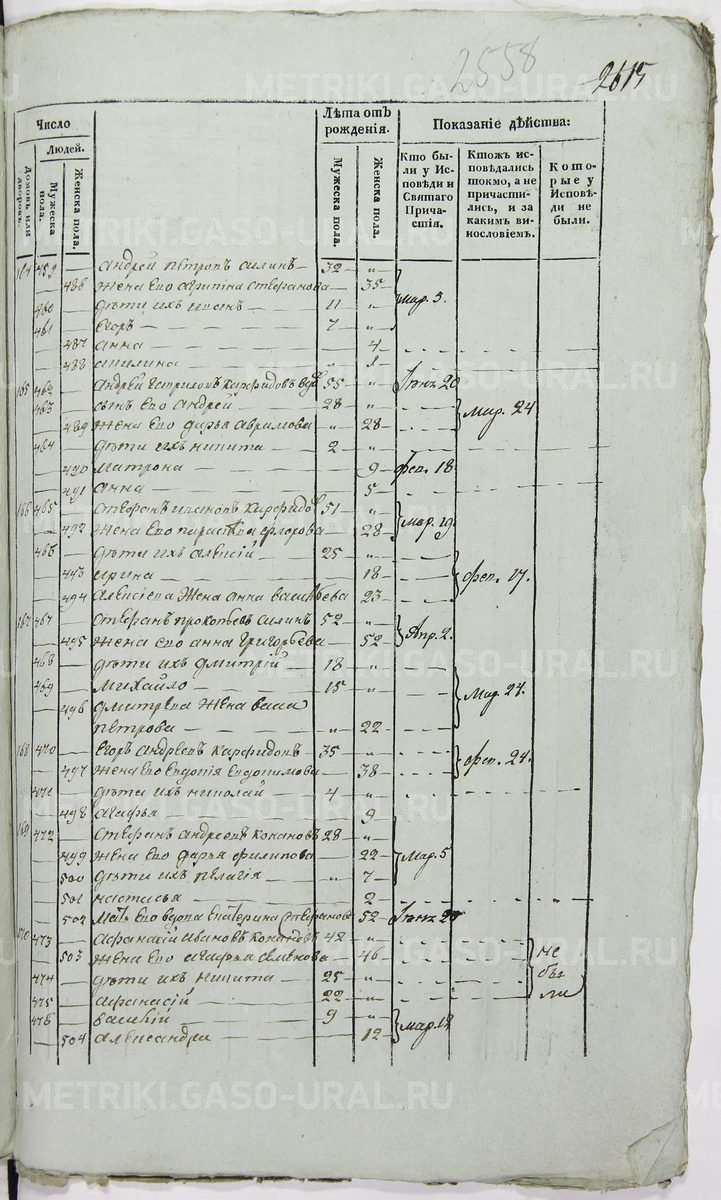 2558
2615
Число
Людей.
Домовъ или дворовъ.
Мужеска пола.
Женска пола.
Лѣта отъ рожденія.
Мужеска пола.
Женска пола.
Показаніе дѣйства:
Кто были у Исповѣди и Святаго Причастія.
Ктожъ исповѣдались токмо, а не причастились, и за какимъ винословіемъ.
Которые у Исповѣди не были.
164 459 Андрей Петровъ Силинъ 32 "
486 Жена его Агрипина Стефанова 35 Мар. 5.
460 дѣти ихъ 11 "
461 Егоръ 7 "
487 Анна 4
488 " 1
165 462 Андрей Карфидовъ вдв 55 " Генв 20
463 сынъ его Андрей 28 " Мар. 24
489 Жена его Дарья Аврамова " 28
464 дѣти ихъ Никита 2 "
490 Матрона 9 Фев. 18.
491 Анна 5
166 465 Стефанъ Ивановъ Карфидов 51 "
492 Жена его Параскева Флорова 28 Мар. 19.
466 дѣти ихъ Алексій 25 "
493 Ирина 18 Фев. 17.
494 Алексіева жена Анна Васильева 23
167 467 Стефанъ Прокопьевъ Силинъ 52 "
495 Жена его Анна Григорьева 52 Апр. 2.
468 дѣти ихъ Дмитрій 18 "
469 Михайло 15 "
496 Дмитрева жена Васса Мар. 24.
Петрова " 22
168 470 Егоръ Андреевъ Карфидовъ 35 "
497 Жена его Евдокія Евдокимова 38 Фев. 24.
471 дѣти ихъ Николай 4 "
498 Агафья 9
169 472 Стефанъ Андреевъ Конановъ 28 "
499 Жена его Дарья Филипова 22 Мар. 5
500 дѣти ихъ Пелагія " 7
501 Настасья 2
502 Мать его вдова Екатерина Стефанова 52 Генв 20
170 473 Афанасій Ивановъ Конановъ 42 "
503 Жена его Агафья Семенова 46 не
474 дѣти ихъ Никита 25 " бы
475 Афанасій 22 " ли
476 Василій 9 "
504 Александра 12 Мар. 12
METRIKI.GASO-URAL.RU